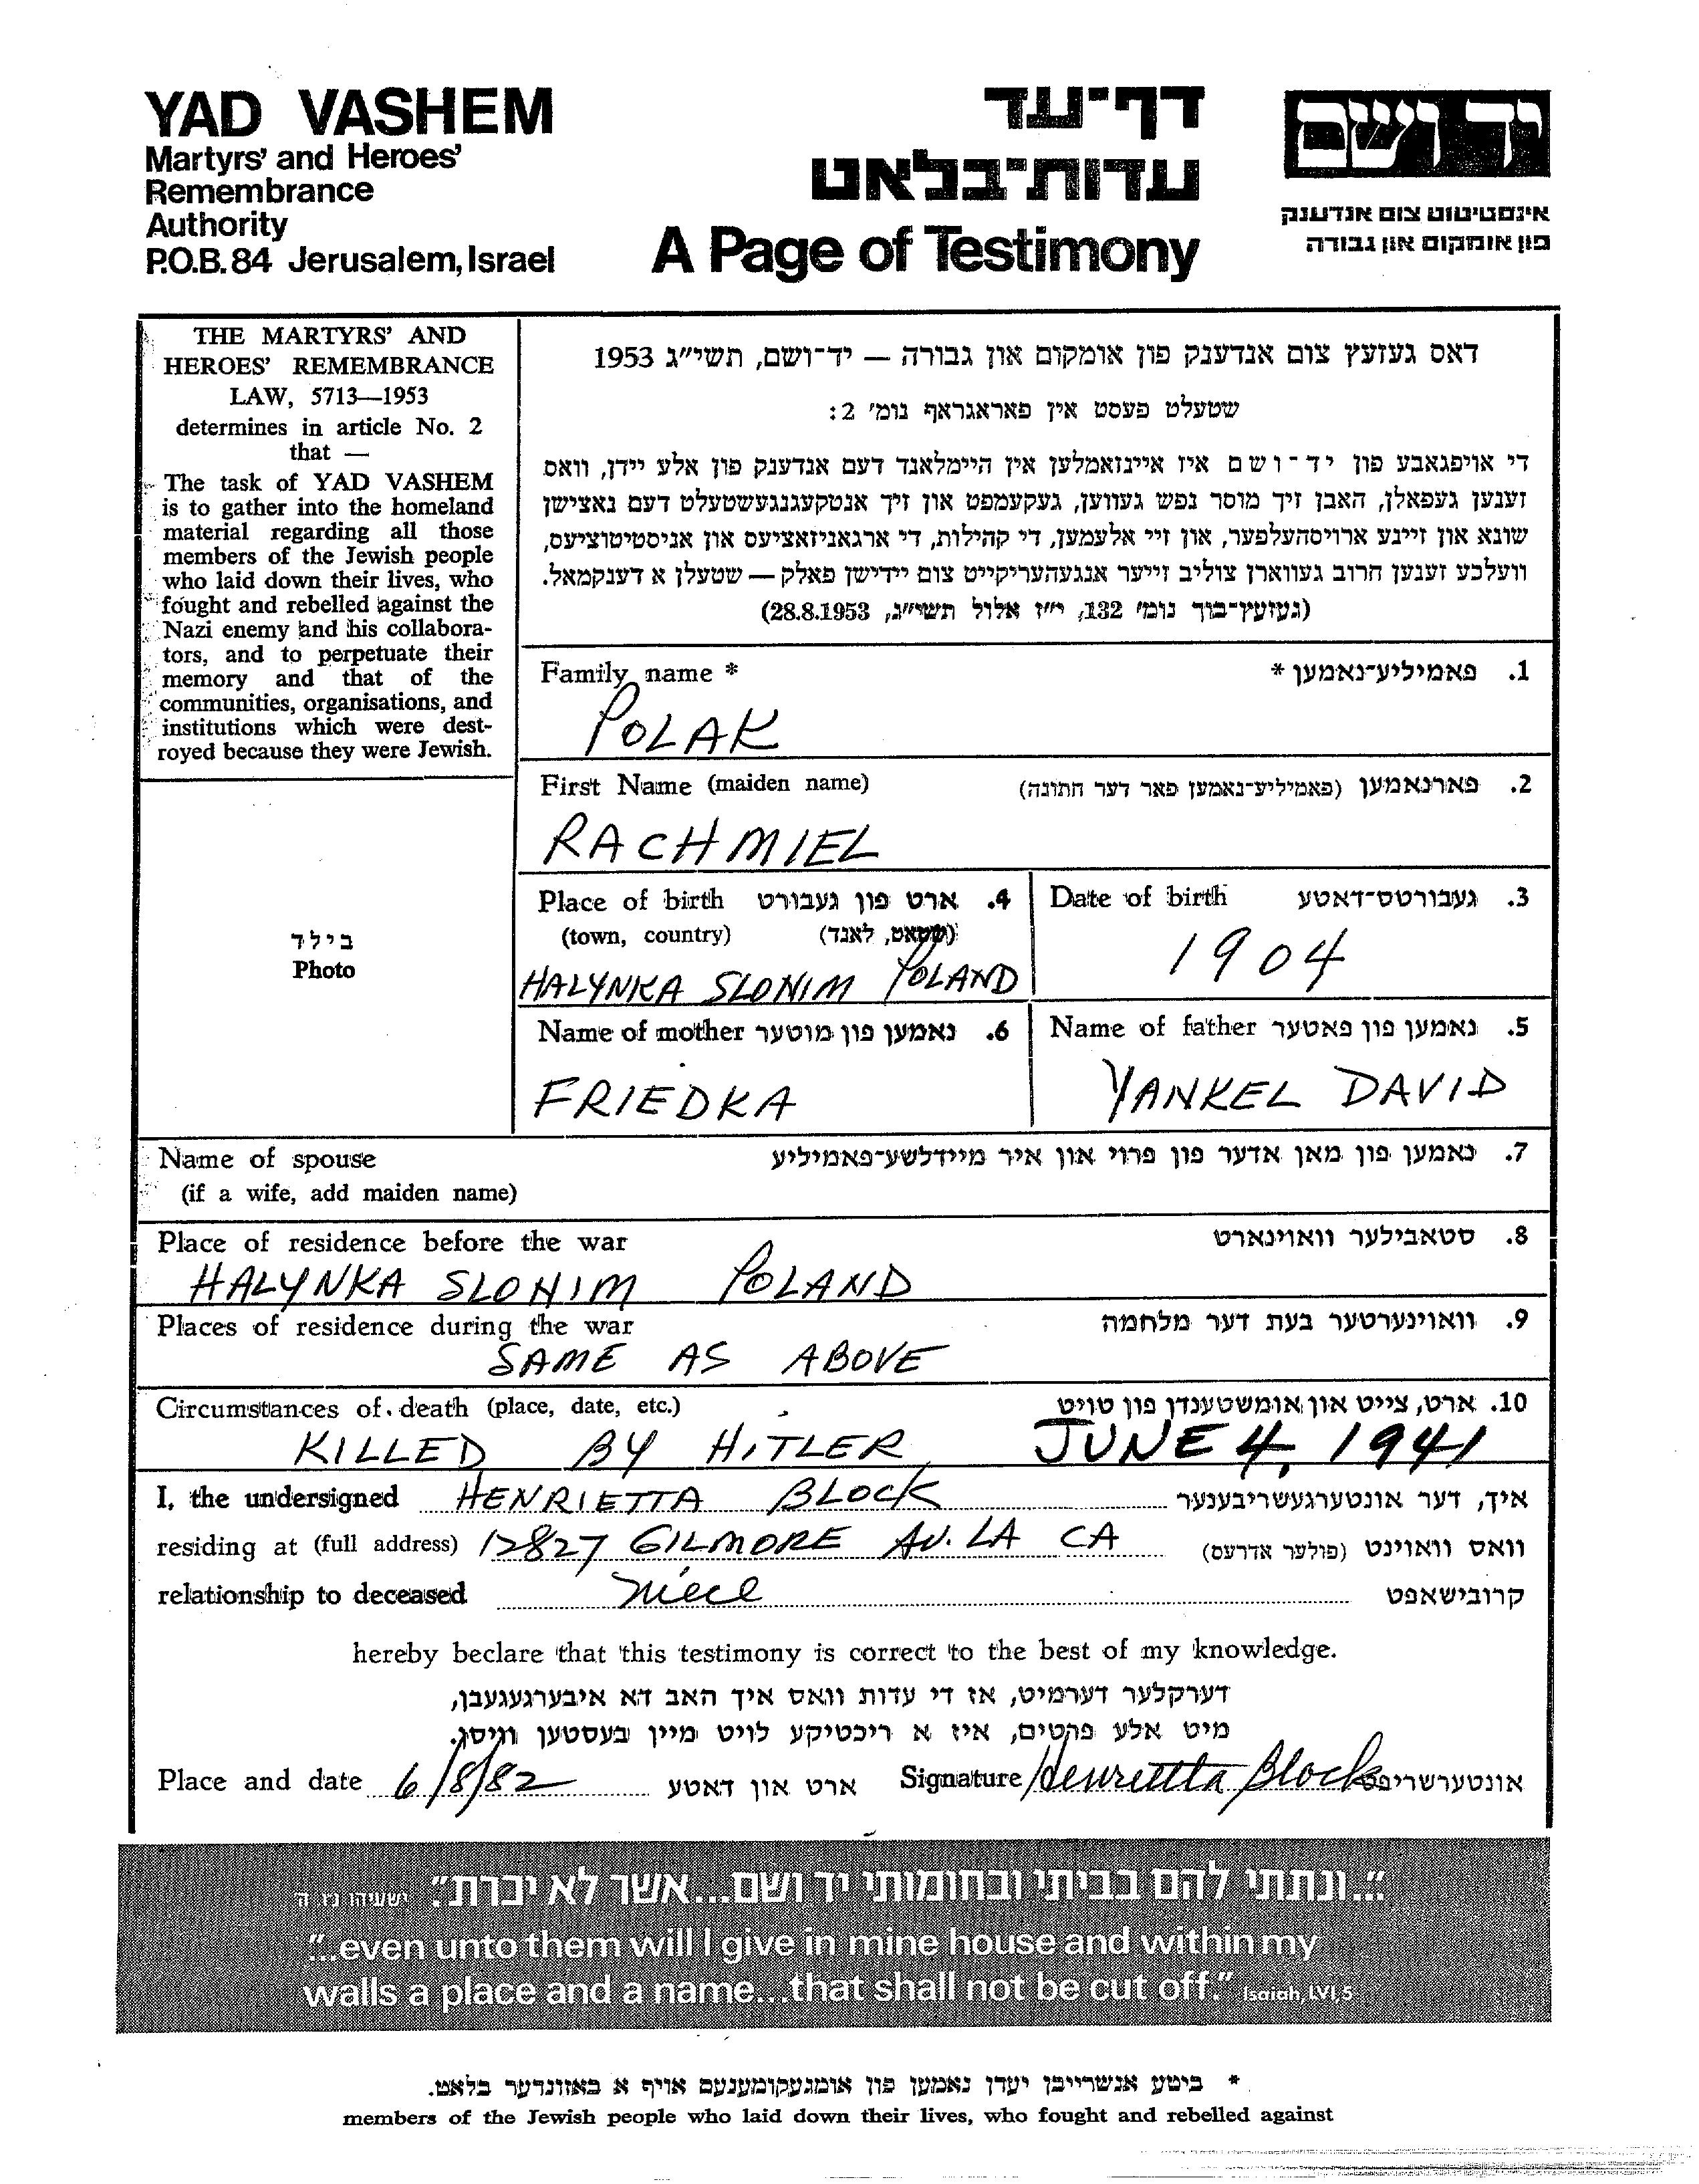 YAD VASHEM
Martyrs' and Heroes'
Remembrance
Authority
P.O.B. 84 Jerusalem, Israel
דף־עד
עדות־בלאט
A Page of Testimony
יד ושם
אינסטיטוט צום אנדענק
פון אומקום און גבורה
THE MARTYRS' AND
HEROES' REMEMBRANCE
LAW, 5713—1953
determines in article No. 2
that —
The task of YAD VASHEM
is to gather into the homeland
material regarding all those
members of the Jewish people
who laid down their lives, who
fought and rebelled against the
Nazi enemy and his collabora-
tors, and to perpetuate their
memory and that of the
communities, organisations, and
institutions which were dest-
royed because they were Jewish.
דאס געזעץ צום אנדענק פון אומקום און גבורה — יד־ושם, תשי"ג 1953
שטעלט פעסט אין פאראגראף נומ' 2:
די אויפגאבע פון יד־ושם איז איינזאמלען אין היימלאנד דעם אנדענק פון אלע יידן, וואס
זענען געפאלן, האבן זיך מוסר נפש געווען, געקעמפט און זיך אנטקעגנגעשטעלט דעם נאצישן
שונא און זיינע ארויסהעלפער, און זיי אלעמען, די קהילות, די ארגאניזאציעס און אניסטיטוציעס,
וועלכע זענען חרוב געווארן צוליב זייער אנגעהעריקייט צום יידישן פאלק — שטעלן א דענקמאל.
(געזעץ־בוך נומ' 132, י"ז אלול תשי"ג, 28.8.1953)
Family name * פאמיליע־נאמען * .1
POLAK
First Name (maiden name) פארנאמען (פאמיליע־נאמען פאר דער חתונה) .2
RACHMIEL
Place of birth ארט פון געבורט .4
(town, country) (שטאט, לאנד)
HALYNKA SLONIM POLAND
Date of birth געבורטס־דאטע .3
1904
Name of mother נאמען פון מוטער .6
FRIEDKA
Name of father נאמען פון פאטער .5
YANKEL DAVID
בילד
Photo
Name of spouse נאמען פון מאן אדער פון פרוי און איר מיידלשע־פאמיליע .7
(if a wife, add maiden name)
Place of residence before the war סטאבילער וואוינארט .8
HALYNKA SLONIM POLAND
Places of residence during the war וואוינערטער בעת דער מלחמה .9
SAME AS ABOVE
Circumstances of death (place, date, etc.) ארט, צייט און אומשטענדן פון טויט .10
KILLED BY HITLER JUNE 4, 1941
I, the undersigned HENRIETTA BLOCK איך, דער אונטערגעשריבענער
residing at (full address) 12827 GILMORE AV. LA CA וואס וואוינט (פולער אדרעס)
relationship to deceased niece קרובישאפט
hereby beclare that this testimony is correct to the best of my knowledge.
דערקלער דערמיט, אז די עדות וואס איך האב דא איבערגעגעבן,
מיט אלע פרטים, איז א ריכטיקע לויט מיין בעסטען וויסן.
Place and date 6/8/82 ארט און דאטע Signature Henrietta Block אונטערשריפט
"...ונתתי להם בביתי ובחומותי יד ושם...אשר לא יכרת". ישעיהו נו, ה
"...even unto them will I give in mine house and within my
walls a place and a name...that shall not be cut off." Isaiah, LVI, 5
* ביטע אנשרייבן יעדן נאמען פון אומגעקומענעם אויף א באזונדער בלאט.
members of the Jewish people who laid down their lives, who fought and rebelled against